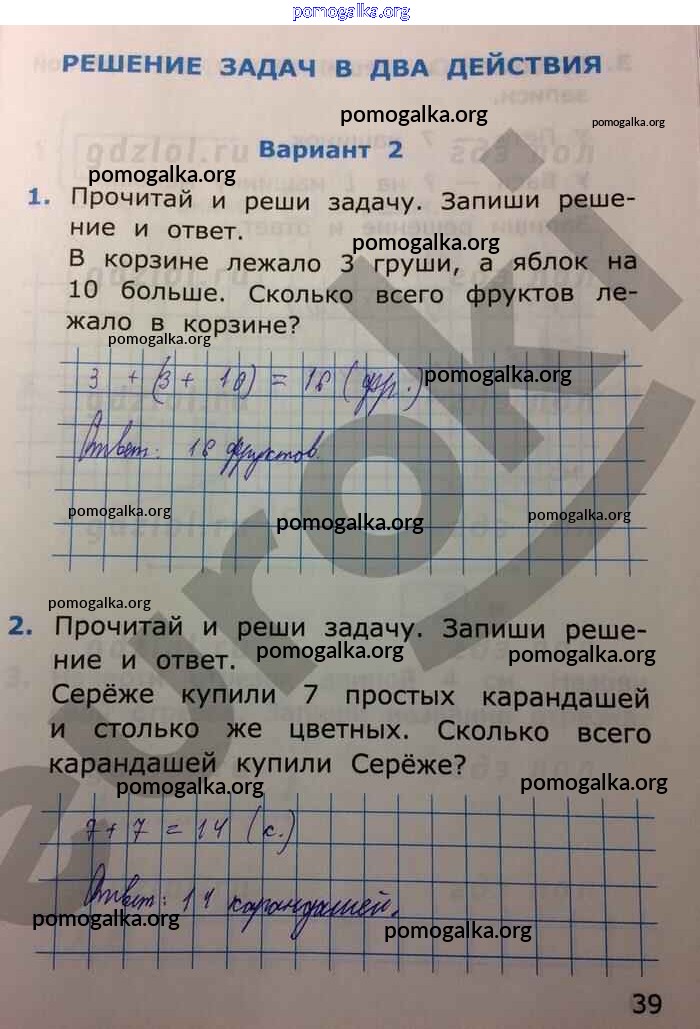 pomogalka.org
РЕШЕНИЕ ЗАДАЧ В ДВА ДЕЙСТВИЯ
pomogalka.org
pomogalka.org
gdzlol.ru
Вариант 2
pomogalka.org
1. Прочитай и реши задачу. Запиши реше-
ние и ответ.
pomogalka.org
В корзине лежало 3 груши, а яблок на
10 больше. Сколько всего фруктов ле-
жало в корзине?
pomogalka.org
3 + (3 + 10) = 16 (фр.)
pomogalka.org
Ответ: 16 фруктов.
pomogalka.org
pomogalka.org
pomogalka.org
euroki
pomogalka.org
2. Прочитай и реши задачу. Запиши реше-
ние и ответ.
pomogalka.org
pomogalka.org
Серёже купили 7 простых карандашей
и столько же цветных. Сколько всего
карандашей купили Серёже?
pomogalka.org
pomogalka.org
7 + 7 = 14 (к.)
Ответ: 14 карандашей.
pomogalka.org
pomogalka.org
39